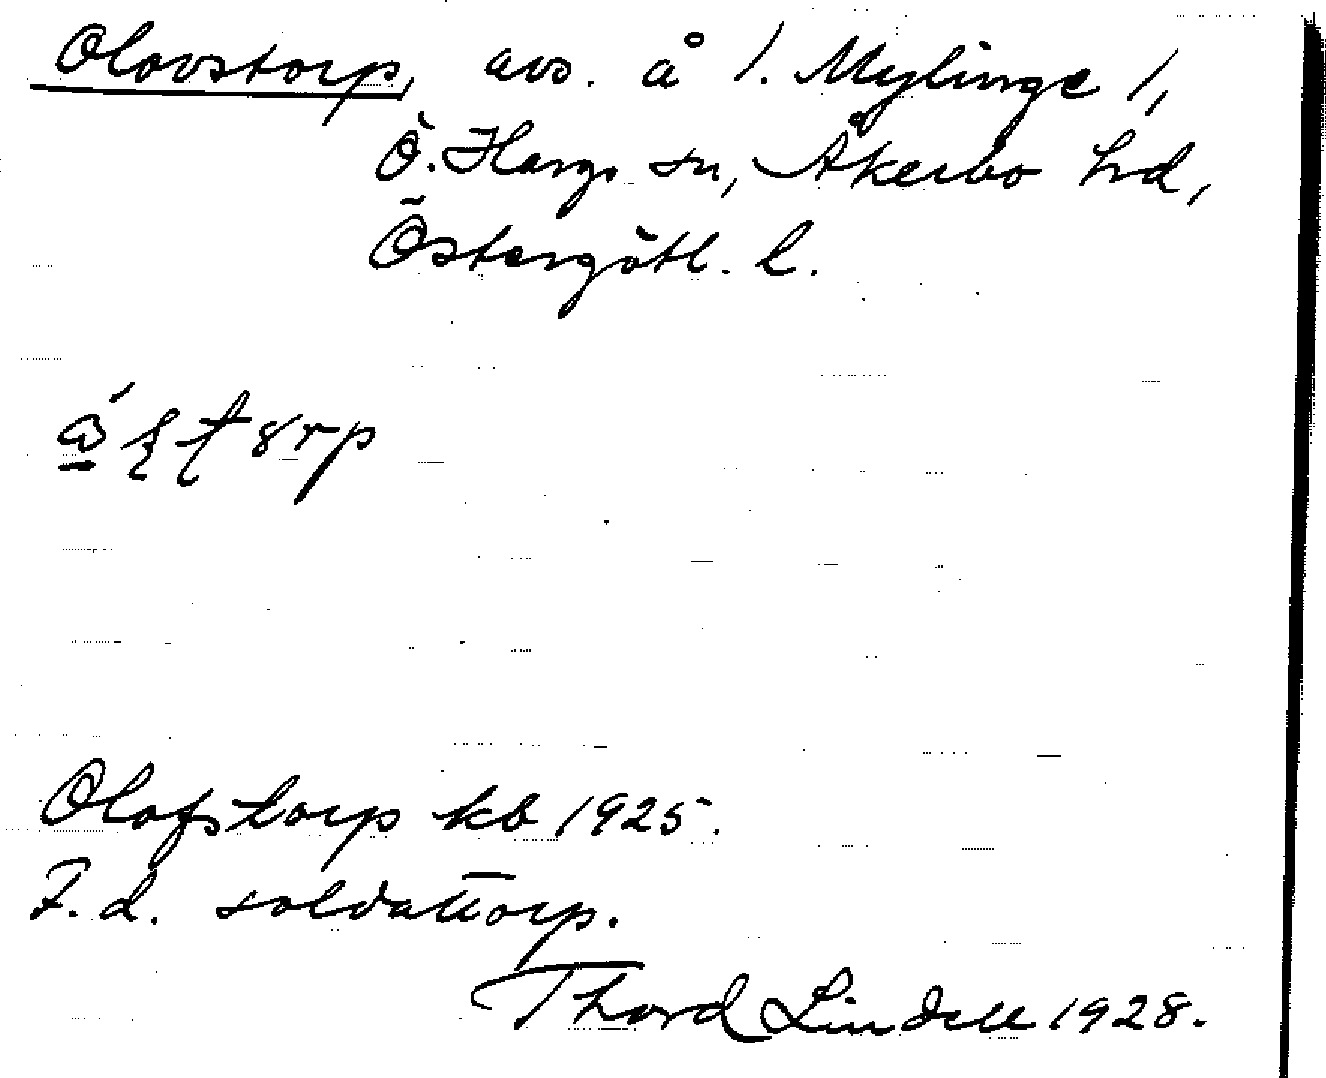 Olovstorp, avs. å 1. Mylinge 1,
Ö. Hargs sn, Åkerbo hd,
Östergötl. l.
Olofstorp kb 1925.
F.d. soldattorp.
Thord Lindell 1928.